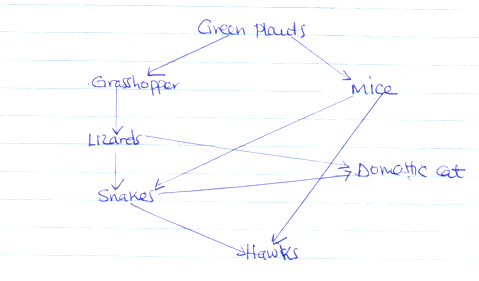 Green Plants
Grasshopper
Mice
Lizards
Domastic cat
Snakes
Hawks